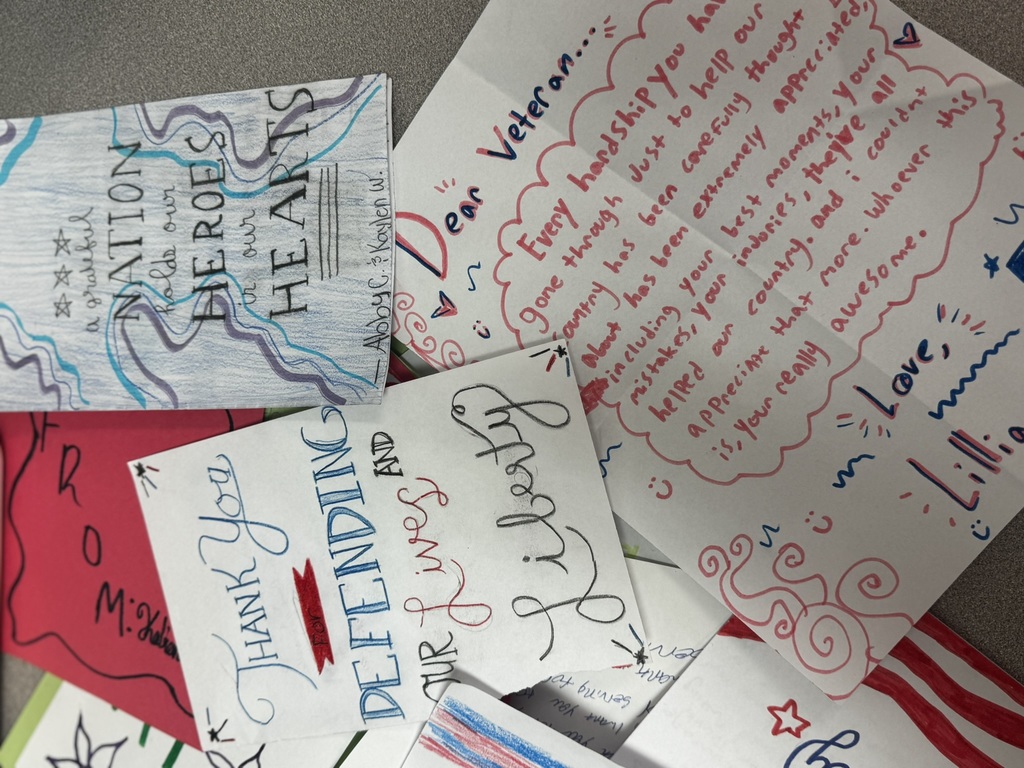 a grateful
NATION
holds our
HEROES
in our
HEARTS
Abby C. & Kaylen W.
Dear Veteran...
Every hardship you hav
gone through Just to help our
country has been carefully thought
About has been extremely appreciated,
including your best moments, your
mistakes, your indories, they've all
helped our country. and i couldnt
appreciate that more. Whoever this
is, your really awesome.
Love,
Lillia
THANK YOU
FOR
DEFENDING
OUR Lives AND
Liberty
FROM
serving for